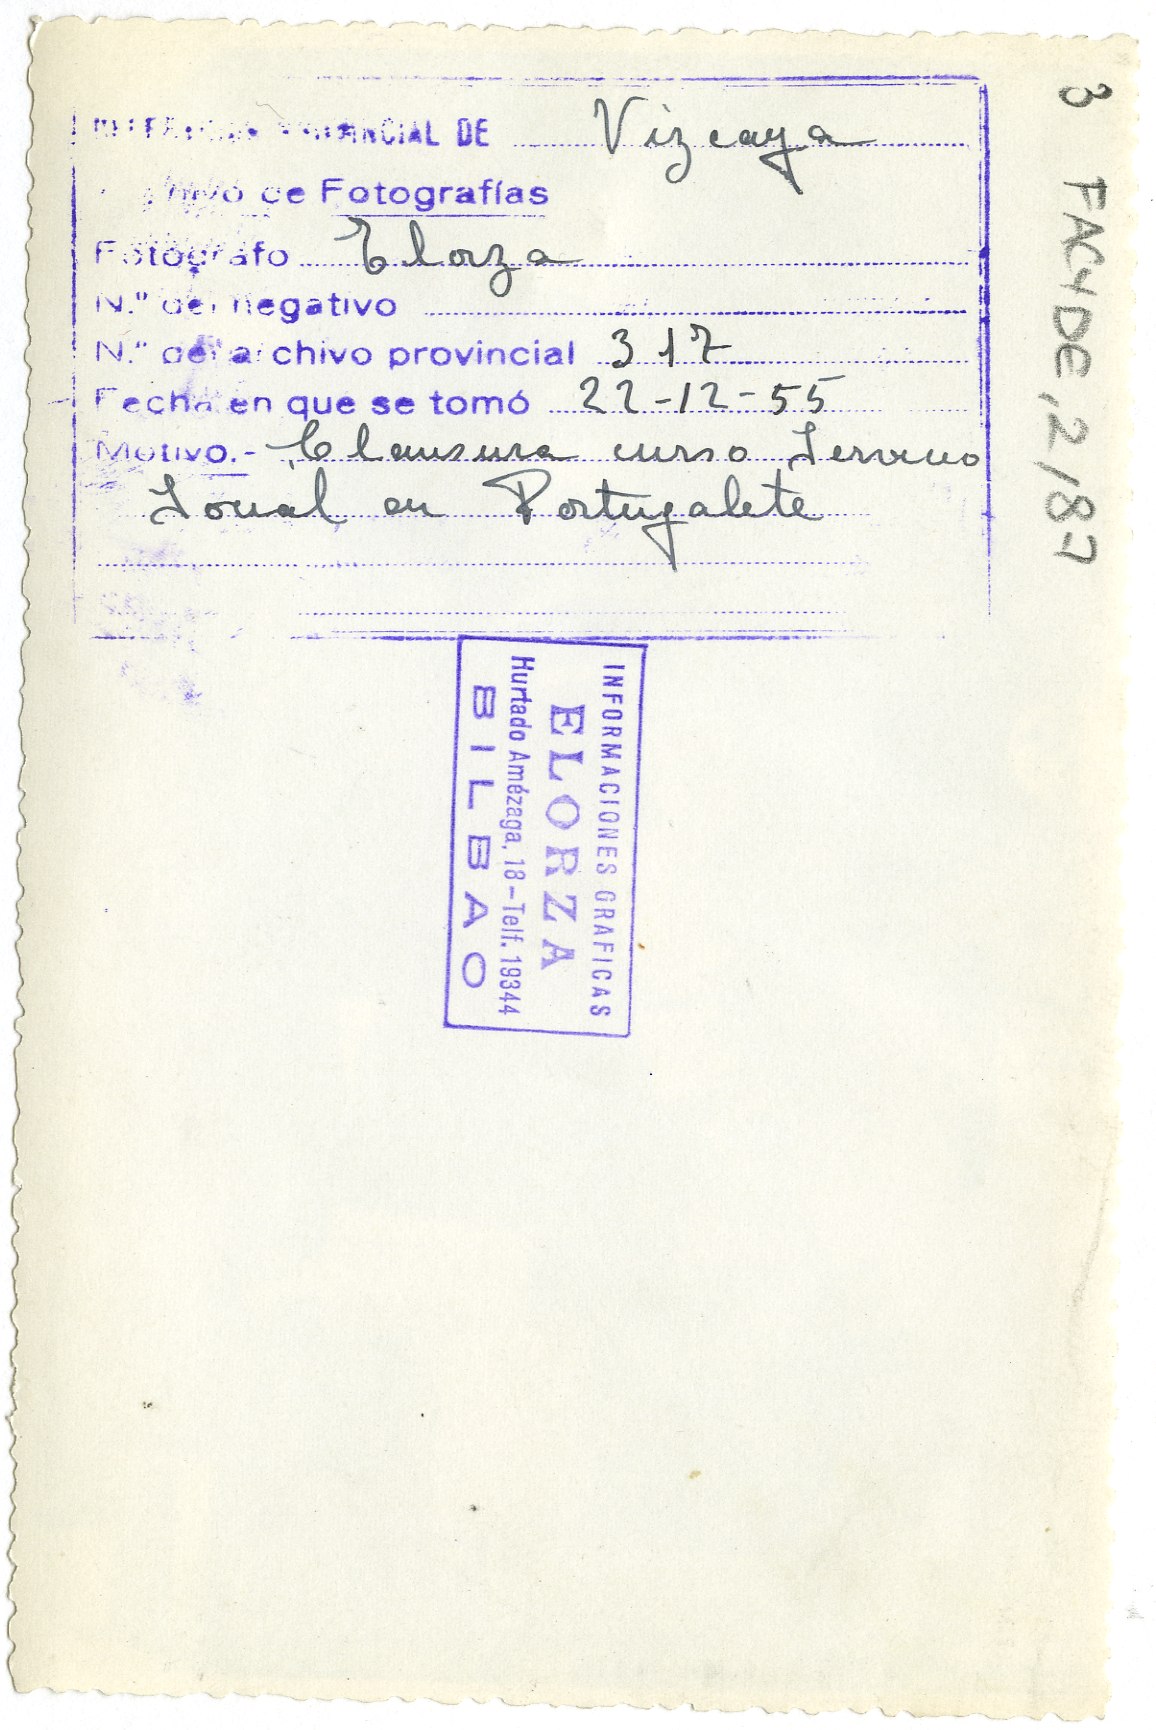 DELEGACION PROVINCIAL DE Vizcaya
Archivo de Fotografías
Fotógrafo Elorza
N.º del negativo
N.º del archivo provincial 317
Fecha en que se tomó 22-12-55
Motivo.- Clausura curso Servicio
Social en Portugalete
INFORMACIONES GRAFICAS
ELORZA
Hurtado Amézaga, 18-Telf. 19344
BILBAO
3 FACYDE, 2/87